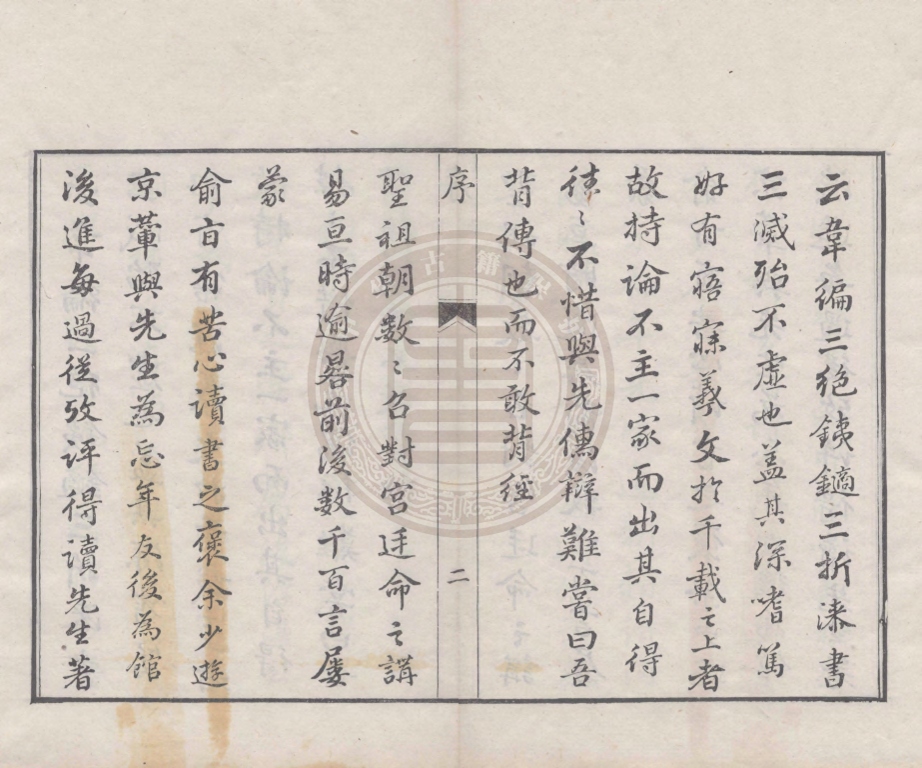 云韋編三絶鐵鏑三折漆書
三滅殆不虛也蓋其深嗜篤
好有寤寐羲文於千載之上者
故持論不主一家而出其自得
徃〻不惜與先儒辯難嘗曰吾
背傳也而不敢背經
序
二
聖祖朝数〻召對宫廷命之講
易亘時逾晷前後数千百言屢
蒙
俞旨有苦心讀書之褒余少遊
京輦與先生為忘年友後為館
後進每過從攷評得讀先生著